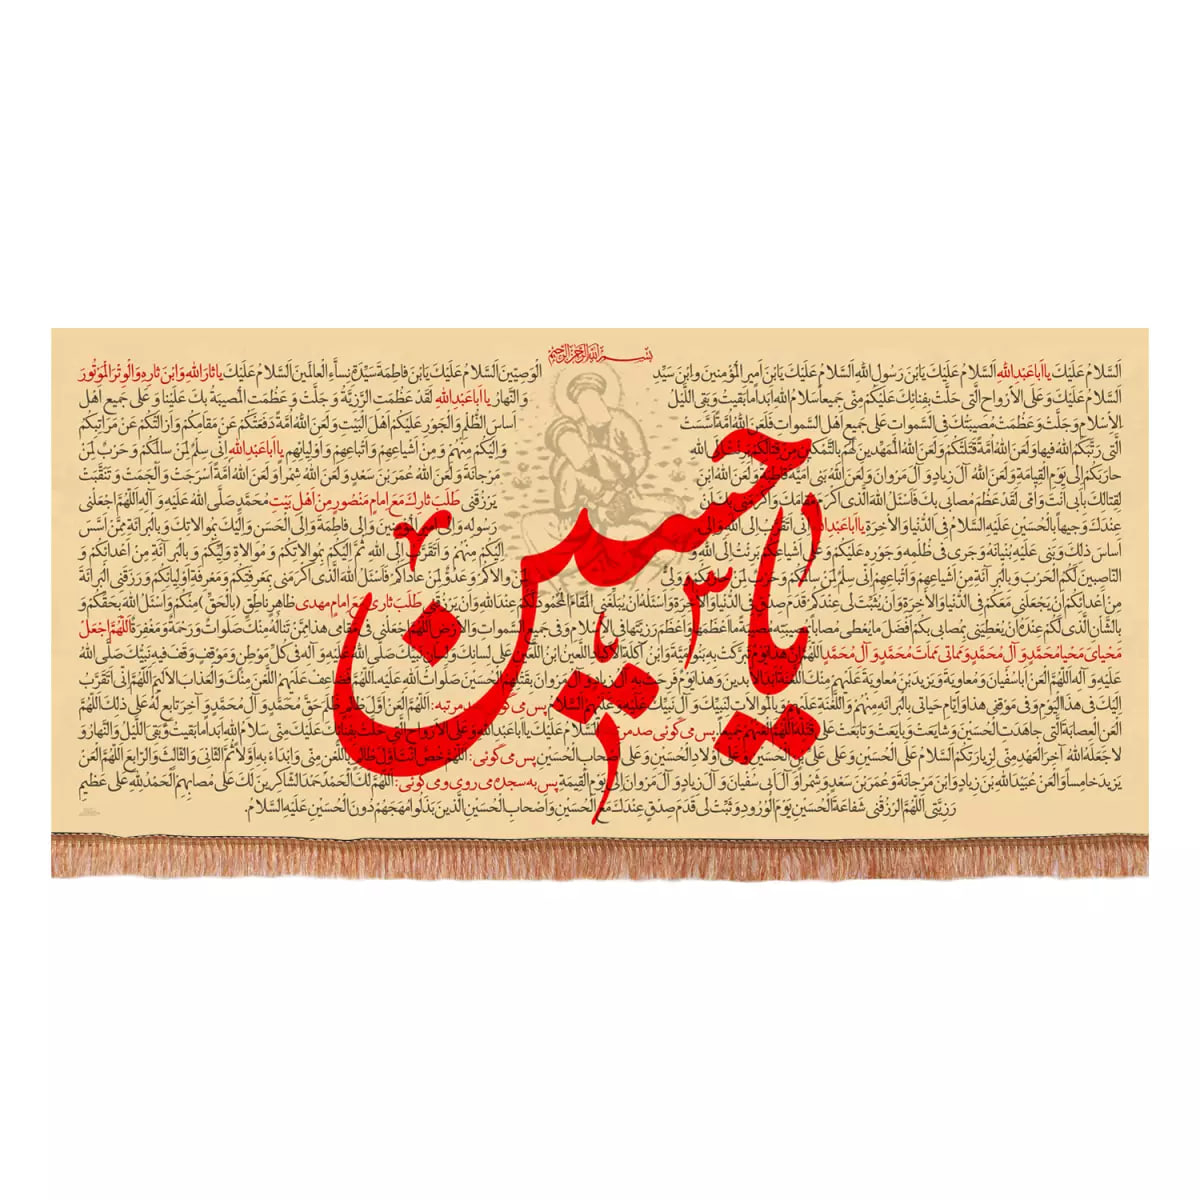 بِسْمِ اللهِ الرَّحْمنِ الرَّحيمِ
اَلسَّلامُ عَلَيْكَ يا اَبا عَبْدِاللهِ اَلسَّلامُ عَلَيْكَ يَابْنَ رَسُولِ اللهِ اَلسَّلامُ عَلَيْكَ يَابْنَ اَميرِ الْمُؤْمِنينَ وَابْنَ سَيِّدِ الْوَصِيّينَ اَلسَّلامُ عَلَيْكَ يَابْنَ فاطِمَةَ سَيِّدَةِ نِساءِ الْعالَمينَ اَلسَّلامُ عَلَيْكَ يا ثارَ اللهِ وَابْنَ ثارِهِ وَالْوِتْرَ الْمَوْتُورَ
اَلسَّلامُ عَلَيْكَ وَ عَلَى الْأَرْواحِ الَّتى حَلَّتْ بِفِنائِكَ عَلَيْكُمْ مِنّى جَميعاً سَلامُ اللهِ اَبَداً ما بَقيتُ وَ بَقِىَ اللَّيْلُ وَ النَّهارُ يا اَبا عَبْدِاللهِ لَقَدْ عَظُمَتِ الرَّزِيَّةُ وَ جَلَّتْ وَ عَظُمَتِ الْمُصيبَةُ بِكَ عَلَيْنا وَ عَلى جَميعِ اَهْلِ
الْأِسْلامِ وَ جَلَّتْ وَ عَظُمَتْ مُصيبَتُكَ فِى السَّمواتِ عَلى جَميعِ اَهْلِ السَّمواتِ فَلَعَنَ اللهُ اُمَّةً اَسَّسَتْ اَساسَ الظُّلْمِ وَ الْجَوْرِ عَلَيْكُمْ اَهْلَ الْبَيْتِ وَ لَعَنَ اللهُ اُمَّةً دَفَعَتْكُمْ عَنْ مَقامِكُمْ وَ اَزالَتْكُمْ عَنْ مَراتِبِكُمُ
الَّتى رَتَّبَكُمُ اللهُ فيها وَ لَعَنَ اللهُ اُمَّةً قَتَلَتْكُمْ وَ لَعَنَ اللهُ الْمُمَهِّدينَ لَهُمْ بِالتَّمْكينِ مِنْ قِتالِكُمْ بَرِئْتُ اِلَى اللهِ وَ اِلَيْكُمْ مِنْهُمْ وَ مِنْ اَشْياعِهِمْ وَ اَتْباعِهِمْ وَ اَوْلِيائِهِمْ يا اَبا عَبْدِاللهِ اِنّى سِلْمٌ لِمَنْ سالَمَكُمْ وَ حَرْبٌ لِمَنْ
حارَبَكُمْ اِلى يَوْمِ الْقِيامَةِ وَ لَعَنَ اللهُ آلَ زِيادٍ وَ آلَ مَرْوانَ وَ لَعَنَ اللهُ بَنى اُمَيَّةَ قاطِبَةً وَ لَعَنَ اللهُ ابْنَ مَرْجانَةَ وَ لَعَنَ اللهُ عُمَرَ بْنَ سَعْدٍ وَ لَعَنَ اللهُ شِمْراً وَ لَعَنَ اللهُ اُمَّةً اَسْرَجَتْ وَ اَلْجَمَتْ وَ تَنَقَّبَتْ
لِقِتالِكَ بِاَبى اَنْتَ وَ اُمّى لَقَدْ عَظُمَ مُصابى بِكَ فَاَسْئَلُ اللهَ الَّذى اَكْرَمَ مَقامَكَ وَ اَكْرَمَنى بِكَ اَنْ يَرْزُقَنى طَلَبَ ثارِكَ مَعَ اِمامٍ مَنْصُورٍ مِنْ اَهْلِ بَيْتِ مُحَمَّدٍ صَلَّى اللهُ عَلَيْهِ وَ آلِهِ اَللّهُمَّ اجْعَلْنى
عِنْدَكَ وَجيهاً بِالْحُسَيْنِ عَلَيْهِ السَّلامُ فِى الدُّنْيا وَ الْأخِرَةِ يا اَبا عَبْدِاللهِ اِنّى اَتَقَرَّبُ اِلَى اللهِ وَ اِلى رَسُولِهِ وَ اِلى اَميرِ الْمُؤْمِنينَ وَ اِلى فاطِمَةَ وَ اِلَى الْحَسَنِ وَ اِلَيْكَ بِمُوالاتِكَ وَ بِالْبَرائَةِ مِمَّنْ اَسَّسَ
اَساسَ ذلِكَ وَ بَنى عَلَيْهِ بُنْيانَهُ وَ جَرى فى ظُلْمِهِ وَ جَوْرِهِ عَلَيْكُمْ وَ عَلى اَشْياعِكُمْ بَرِئْتُ اِلَى اللهِ وَ اِلَيْكُمْ مِنْهُمْ وَ اَتَقَرَّبُ اِلَى اللهِ ثُمَّ اِلَيْكُمْ بِمُوالاتِكُمْ وَ مُوالاةِ وَلِيِّكُمْ وَ بِالْبَرائَةِ مِنْ اَعْدائِكُمْ وَ
النّاصِبينَ لَكُمُ الْحَرْبَ وَ بِالْبَرائَةِ مِنْ اَشْياعِهِمْ وَ اَتْباعِهِمْ اِنّى سِلْمٌ لِمَنْ سالَمَكُمْ وَ حَرْبٌ لِمَنْ حارَبَكُمْ وَ وَلِىٌّ لِمَنْ والاكُمْ وَ عَدُوٌّ لِمَنْ عاداكُمْ فَاَسْئَلُ اللهَ الَّذى اَكْرَمَنى بِمَعْرِفَتِكُمْ وَ مَعْرِفَةِ اَوْلِيائِكُمْ وَ رَزَقَنِى الْبَرائَةَ
مِنْ اَعْدائِكُمْ اَنْ يَجْعَلَنى مَعَكُمْ فِى الدُّنْيا وَ الْأخِرَةِ وَ اَنْ يُثَبِّتَ لى عِنْدَكُمْ قَدَمَ صِدْقٍ فِى الدُّنْيا وَ الْأخِرَةِ وَ اَسْئَلُهُ اَنْ يُبَلِّغَنِى الْمَقامَ الْمَحْمُودَ لَكُمْ عِنْدَ اللهِ وَ اَنْ يَرْزُقَنى طَلَبَ ثارى مَعَ اِمامٍ مَهْدِىٍّ ظاهِرٍ ناطِقٍ (بِالْحَقِّ) مِنْكُمْ وَ اَسْئَلُ اللهَ بِحَقِّكُمْ وَ
بِالشَّأْنِ الَّذى لَكُمْ عِنْدَهُ اَنْ يُعْطِيَنى بِمُصابى بِكُمْ اَفْضَلَ ما يُعْطى مُصاباً بِمُصيبَتِهِ مُصيبَةً ما اَعْظَمَها وَ اَعْظَمَ رَزِيَّتَها فِى الْأِسْلامِ وَ فى جَميعِ السَّمواتِ وَ الْأَرْضِ اَللّهُمَّ اجْعَلْنى فى مَقامى هذا مِمَّنْ تَنالُهُ مِنْكَ صَلَواتٌ وَ رَحْمَةٌ وَ مَغْفِرَةٌ اَللّهُمَّ اجْعَلْ
مَحْياىَ مَحْيا مُحَمَّدٍ وَ آلِ مُحَمَّدٍ وَ مَماتى مَماتَ مُحَمَّدٍ وَ آلِ مُحَمَّدٍ اَللّهُمَّ اِنَّ هذا يَوْمٌ تَبَرَّكَتْ بِهِ بَنُو اُمَيَّةَ وَ ابْنُ آكِلَةِ الْأَكْبادِ اللَّعينُ ابْنُ اللَّعينِ عَلى لِسانِكَ وَ لِسانِ نَبِيِّكَ صَلَّى اللهُ عَلَيْهِ وَ آلِهِ فى كُلِّ مَوْطِنٍ وَ مَوْقِفٍ وَقَفَ فيهِ نَبِيُّكَ صَلَّى اللهُ
عَلَيْهِ وَ آلِهِ اَللّهُمَّ الْعَنْ اَبا سُفْيانَ وَ مُعاوِيَةَ وَ يَزيدَ بْنَ مُعاوِيَةَ عَلَيْهِمْ مِنْكَ اللَّعْنَةُ اَبَدَ الْأبِدينَ وَ هذا يَوْمٌ فَرِحَتْ بِهِ آلُ زِيادٍ وَ آلُ مَرْوانَ بِقَتْلِهِمُ الْحُسَيْنَ صَلَواتُ اللهِ عَلَيْهِ اَللّهُمَّ فَضاعِفْ عَلَيْهِمُ اللَّعْنَ مِنْكَ وَ الْعَذابَ الْأَليمَ اَللّهُمَّ اِنّى اَتَقَرَّبُ
اِلَيْكَ فى هذَا الْيَوْمِ وَ فى مَوْقِفى هذا وَ اَيّامِ حَياتى بِالْبَرائَةِ مِنْهُمْ وَ اللَّعْنَةِ عَلَيْهِمْ وَ بِالْمُوالاتِ لِنَبِيِّكَ وَ آلِ نَبِيِّكَ عَلَيْهِ وَ عَلَيْهِمُ السَّلامُ پس مى گوئى صد مرتبه: اَللّهُمَّ الْعَنْ اَوَّلَ ظالِمٍ ظَلَمَ حَقَّ مُحَمَّدٍ وَ آلِ مُحَمَّدٍ وَ آخِرَ تابِعٍ لَهُ عَلى ذلِكَ اَللّهُمَّ
الْعَنِ الْعِصابَةَ الَّتى جاهَدَتِ الْحُسَيْنَ وَ شايَعَتْ وَ بايَعَتْ وَ تابَعَتْ عَلى قَتْلِهِ اَللّهُمَّ الْعَنْهُمْ جَميعاً پس مى گوئى صد مرتبه اَلسَّلامُ عَلَيْكَ يا اَبا عَبْدِاللهِ وَ عَلَى الْأَرْواحِ الَّتى حَلَّتْ بِفِنائِكَ عَلَيْكَ مِنّى سَلامُ اللهِ اَبَداً ما بَقيتُ وَ بَقِىَ اللَّيْلُ وَ النَّهارُ وَ
لا جَعَلَهُ اللهُ آخِرَ الْعَهْدِ مِنّى لِزِيارَتِكُمْ اَلسَّلامُ عَلَى الْحُسَيْنِ وَ عَلى عَلِىِّ بْنِ الْحُسَيْنِ وَ عَلى اَوْلادِ الْحُسَيْنِ وَ عَلى اَصْحابِ الْحُسَيْنِ پس مى گوئى: اَللّهُمَّ خُصَّ اَنْتَ اَوَّلَ ظالِمٍ بِاللَّعْنِ مِنّى وَ ابْدَأْ بِهِ اَوَّلاً ثُمَّ الثّانِىَ وَ الثّالِثَ وَ الرّابِعَ اَللّهُمَّ الْعَنْ
يَزيدَ خامِساً وَ الْعَنْ عُبَيْدَ اللهِ بْنَ زِيادٍ وَ ابْنَ مَرْجانَةَ وَ عُمَرَ بْنَ سَعْدٍ وَ شِمْراً وَ آلَ اَبى سُفْيانَ وَ آلَ زِيادٍ وَ آلَ مَرْوانَ اِلى يَوْمِ الْقِيمَةِ پس به سجده مى روى و مى گوئى: اَللّهُمَّ لَكَ الْحَمْدُ حَمْدَ الشّاكِرينَ لَكَ عَلى مُصابِهِمْ اَلْحَمْدُ لِلّهِ عَلى عَظيمِ
رَزِيَّتى اَللّهُمَّ ارْزُقْنى شَفاعَةَ الْحُسَيْنِ يَوْمَ الْوُرُودِ وَ ثَبِّتْ لى قَدَمَ صِدْقٍ عِنْدَكَ مَعَ الْحُسَيْنِ وَ اَصْحابِ الْحُسَيْنِ الَّذينَ بَذَلُوا مُهَجَهُمْ دُونَ الْحُسَيْنِ عَلَيْهِ السَّلامُ.
یا حسین